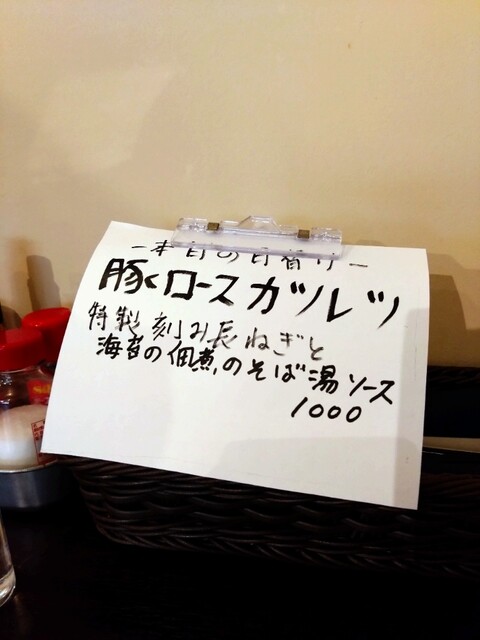 ー本日の日替りー
豚くロースカツレツ
特製刻み長ねぎと
海苔の佃煮のそば湯ソース
1000